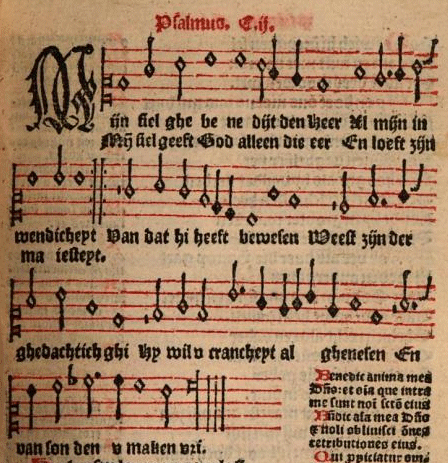 Psalmus. C.ij.
Mijn siel ghe be ne dijt den Heer Al mijn in
Mij siel geeft God alleen die eer En loeft zijn
wendicheyt Van dat hi heeft bewesen Weest zijn der
ma iesteyt.
ghedachtich ghi Hy wil v cranckeyt al ghenesen En
Benedic anima mea
Dño: et oĩa que intra
me sunt noĩ sctõ eius
Bñdic aĩa mea Dño
& noli obliuisci õnes
retributiones eius.
van son den v maken vri. Qui ppiciatur om̃i